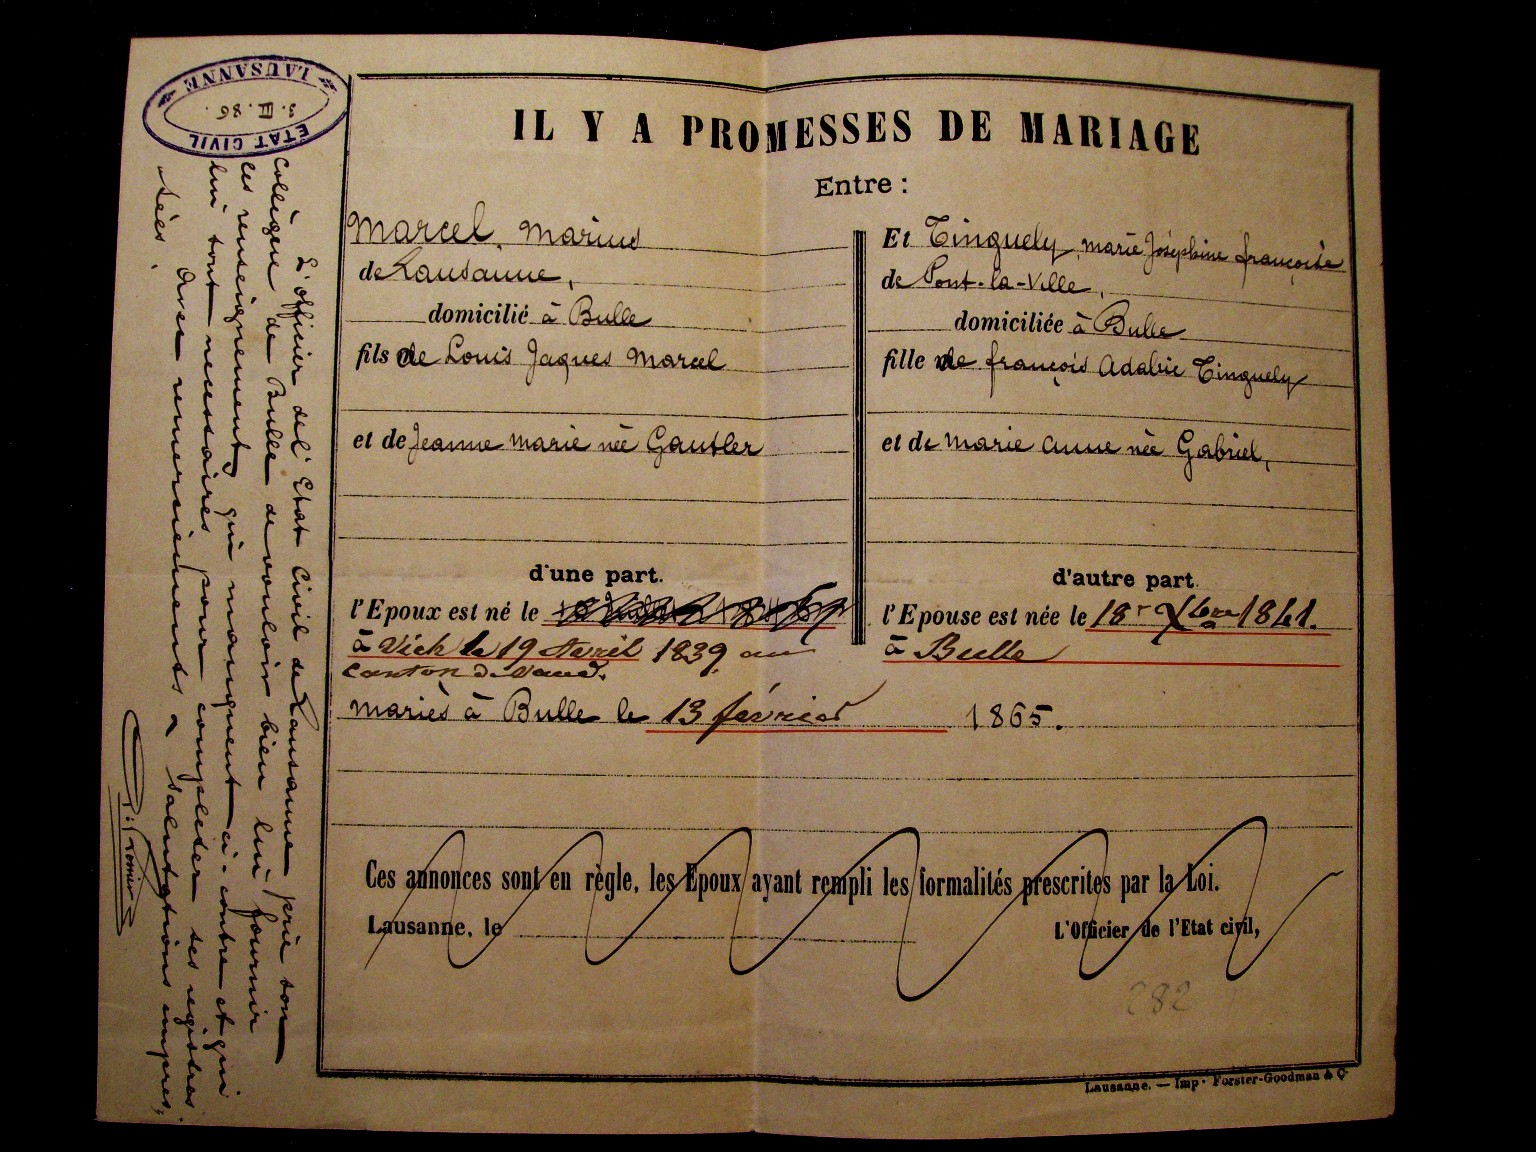 ETAT CIVIL
LAUSANNE
3. III. 86.
L'officier de l'Etat Civil de Lausanne prie son
collègue de Bulle de vouloir bien lui fournir
les renseignements qui manquent ci-contre et qui
lui sont necessaires pour completer ses registres.
Avec remerciements & salutations empres,
sées.
IL Y A PROMESSES DE MARIAGE
Entre :
Marcel, Marius
de Lausanne,
domicilié à Bulle
fils de Louis Jaques Marcel
et de Jeanne Marie née Gautler
d'une part.
l'Epoux est né le
à Vich le 19 Avril 1839 au
canton de Vaud.
Et Tinguely, Marie Joséphine françoise
de Pont-la-Ville,
domiciliée à Bulle
fille de françois Adalric Tinguely
et de Marie Anne née Gabriel,
d'autre part.
l'Epouse est née le 18r Xbre 1841.
à Bulle
mariés à Bulle le 13 février 1865.
Ces annonces sont en règle, les Epoux ayant rempli les formalités prescrites par la Loi.
Lausanne, le
L'Officier de l'Etat civil,
282
Lausanne. — Imp. Forster-Goodman & Cº